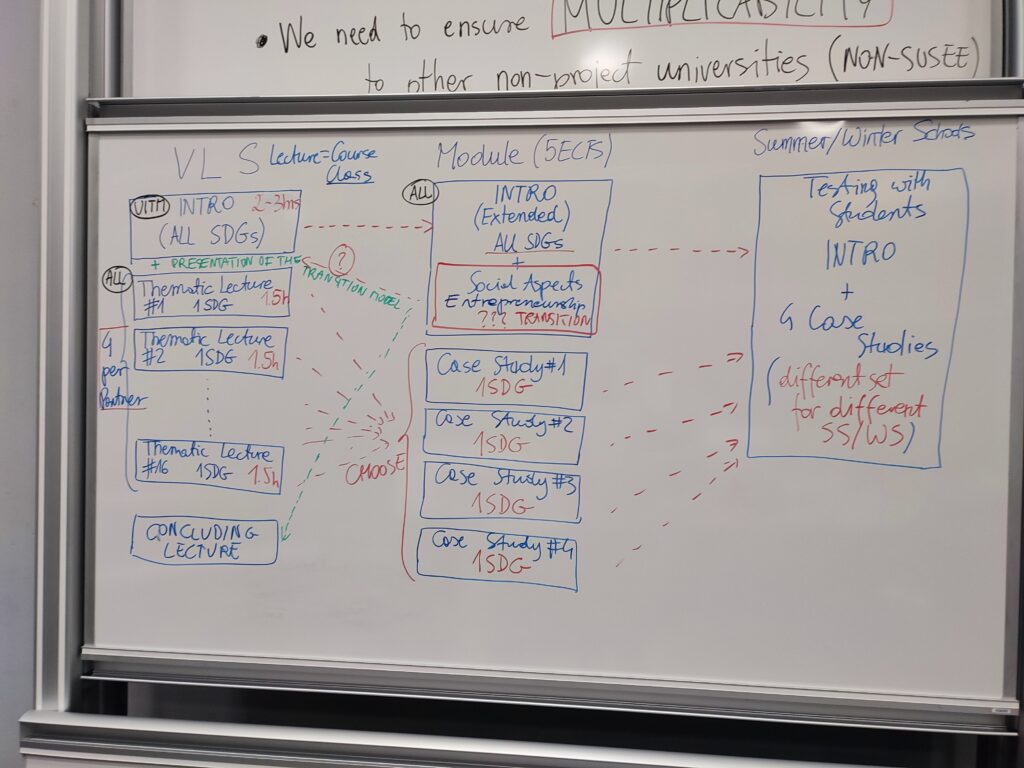 • We need to ensure MULTIPLICABILITY
to other non-project universities (NON-SUSEE)
VLS Lecture=Course
Class
VITM INTRO 2-3hrs
(ALL SDGs)
+ PRESENTATION OF THE
TRANSITION MODEL
?
ALL
Thematic Lecture
#1 1SDG 1.5h
4
per
Partner
Thematic Lecture
#2 1SDG 1.5h
Thematic Lecture
#16 1SDG 1.5h
CONCLUDING
LECTURE
CHOOSE
Module (5ECTS)
ALL
INTRO
(Extended)
ALL SDGs
+
Social Aspects
Entrepreneurship
??? TRANSITION
Case Study#1
1SDG
Case Study#2
1SDG
Case Study #3
1SDG
Case Study #4
1SDG
Summer/Winter Schools
Testing with
Students
INTRO
+
4 Case
Studies
(different set
for different
SS/WS)